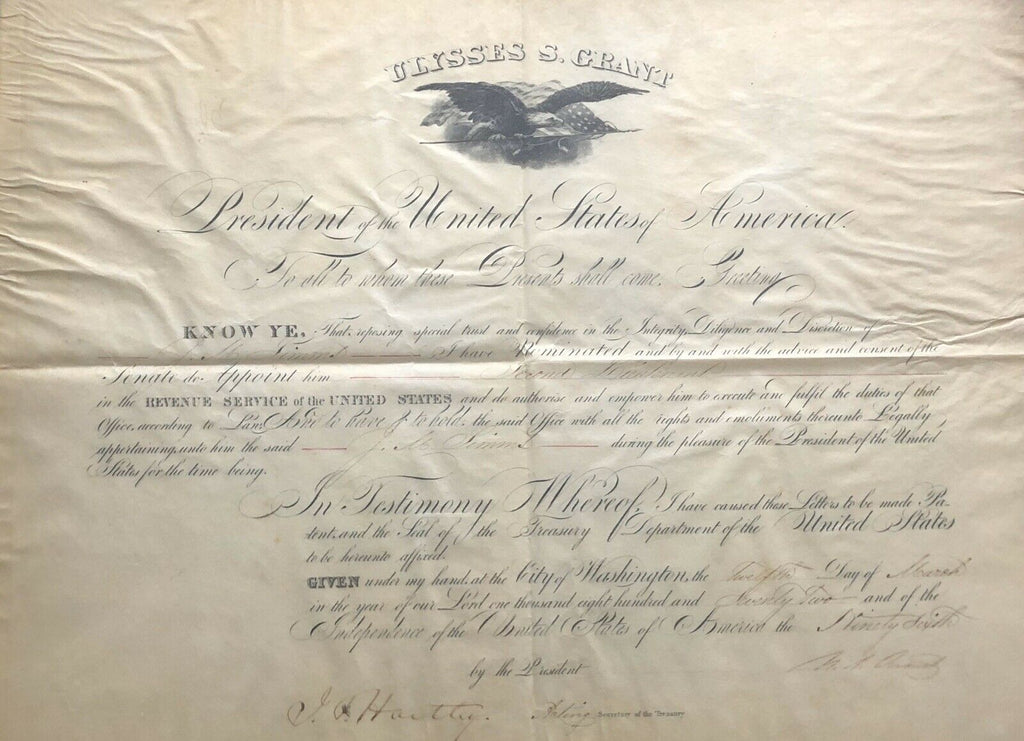 ULYSSES S. GRANT
President of the United States of America.
To all to whom these Presents shall come, Greeting
KNOW YE, That, reposing special trust and confidence in the Integrity, Diligence and Discretion of
J. M. Simms I have Nominated and by and with the advice and consent of the
Senate do Appoint him Second Lieutenant
in the REVENUE SERVICE of the UNITED STATES and do authorise and empower him to execute and fulfil the duties of that
Office, according to Law: And to have & to hold, the said Office with all the rights and emoluments thereunto Legally
appertaining, unto him the said J. M. Simms during the pleasure of the President of the United
States for the time being.
In Testimony Whereof, I have caused these Letters to be made Pa-
tent, and the Seal of the Treasury Department of the United States
to be hereunto affixed.
GIVEN under my hand, at the City of Washington, the Twelfth Day of March
in the year of our Lord one thousand eight hundred and Seventy Two and of the
Independence of the United States of America the Ninety Sixth
by the President U. S. Grant
J. F. Hartley. Acting Secretary of the Treasury